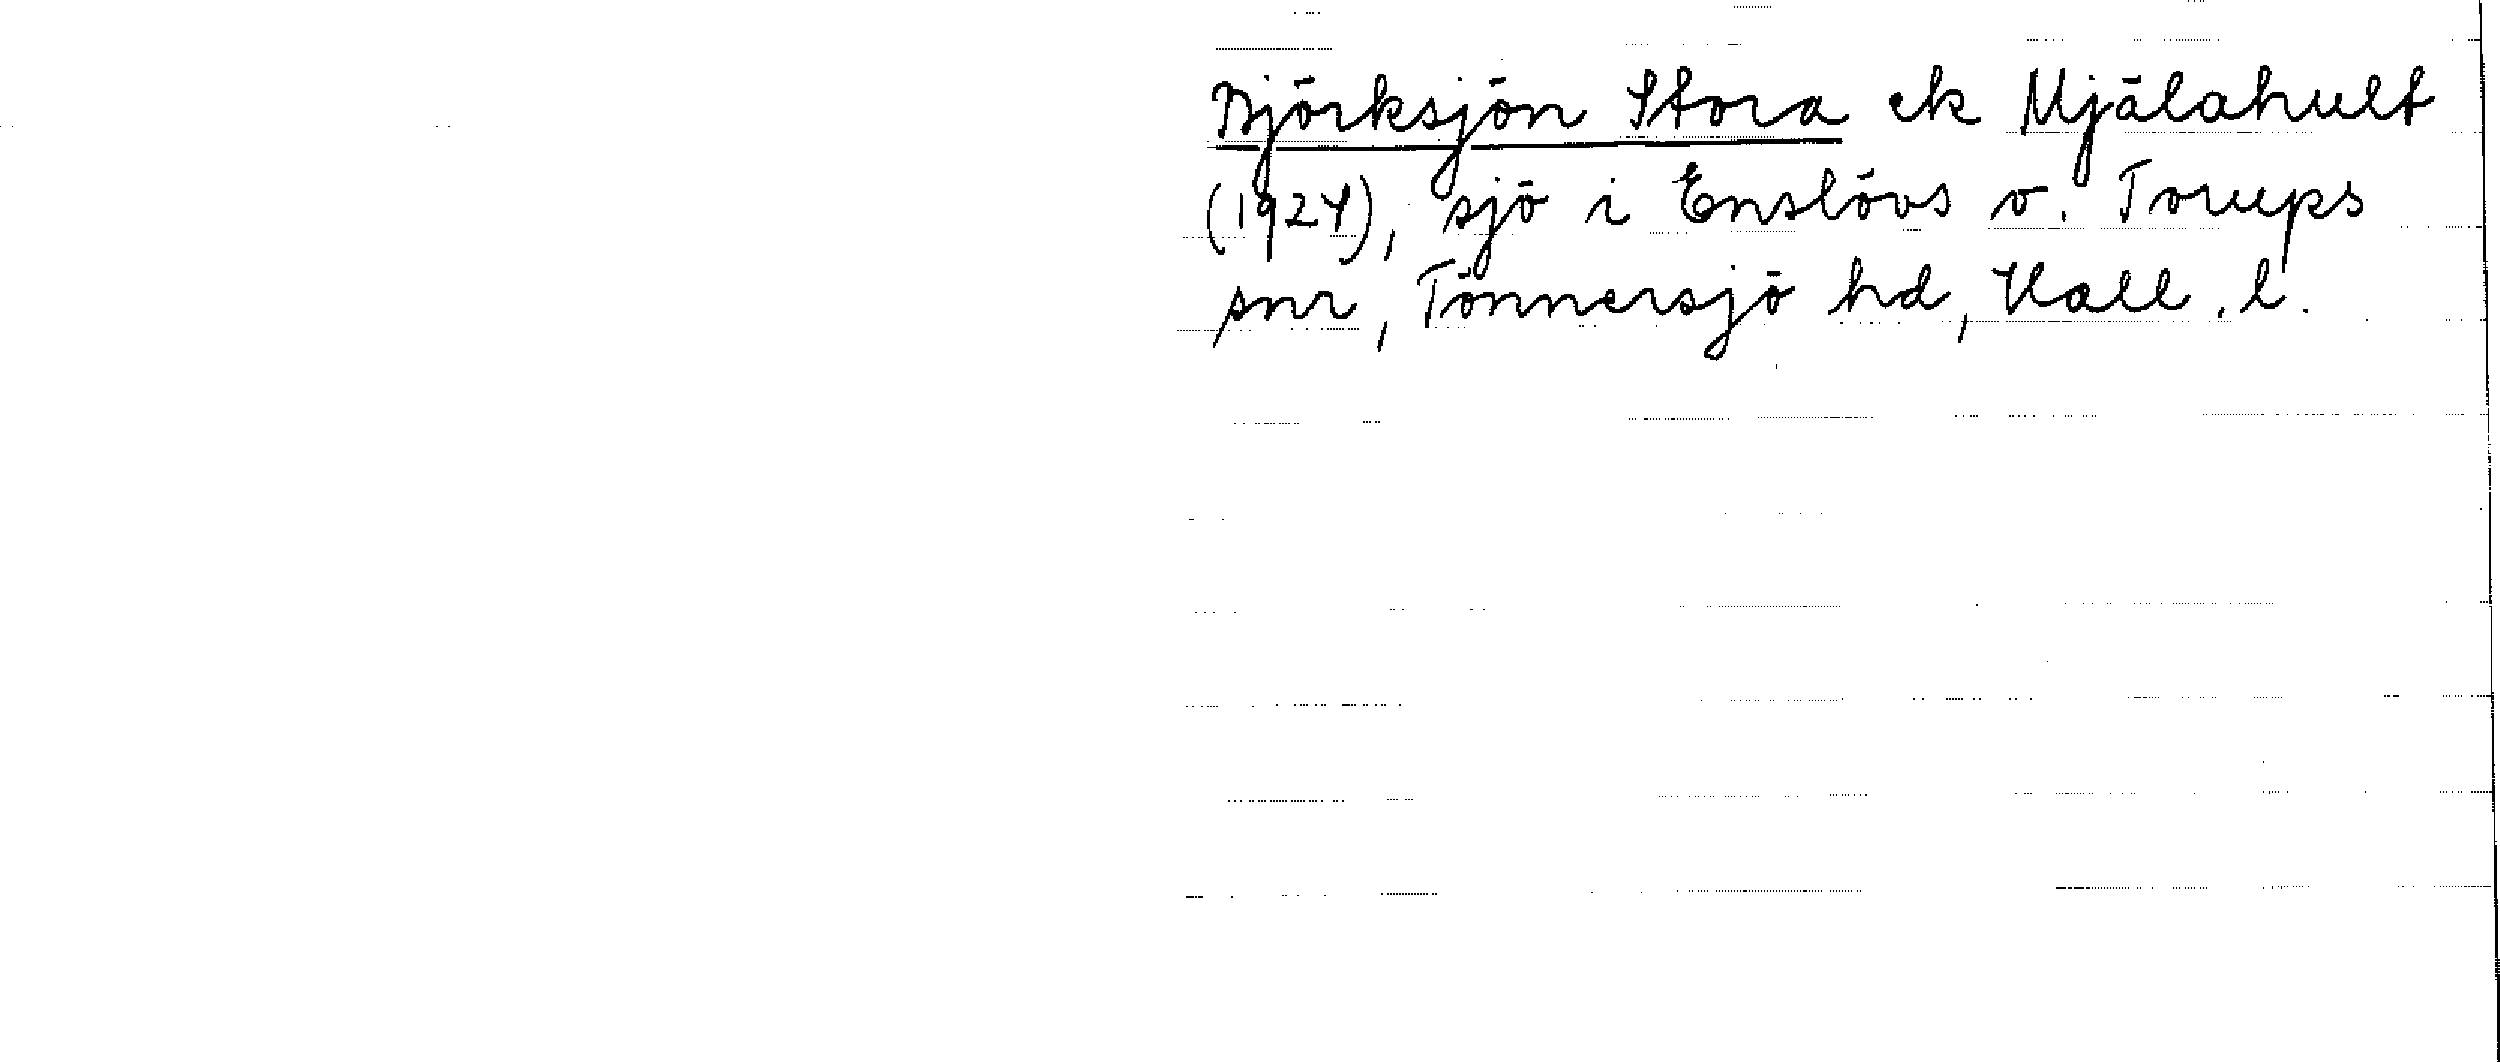 Björksjön Stora ek Mjälahult
(1924), sjö i Enslövs o. Torups
snr, Tönnersjö hd, Hall. l.